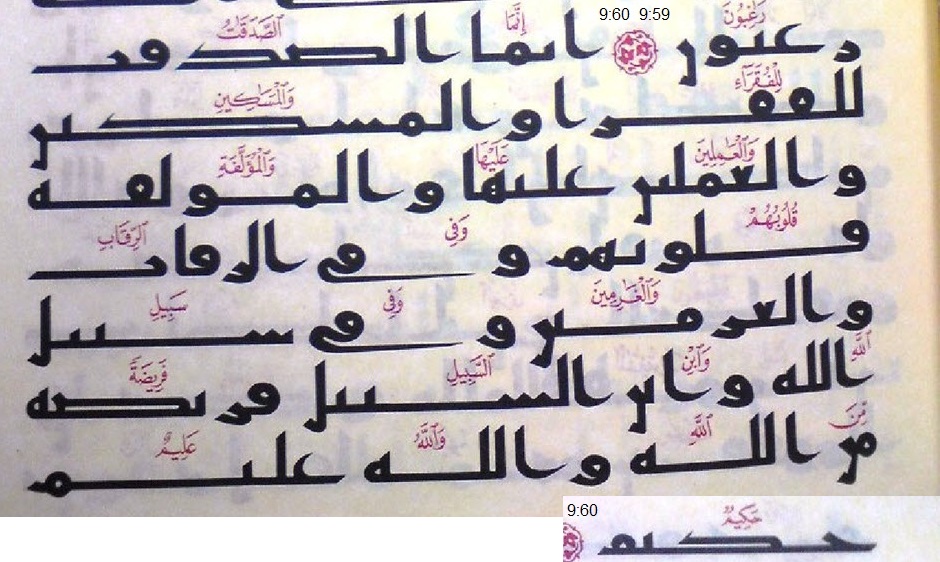 9:60 9:59
رَٰغِبُونَ إِنَّمَا ٱلصَّدَقَٰتُ
رغبون انما الصدقت
لِلْفُقَرَآءِ وَٱلْمَسَٰكِينِ
للفقرا والمسكين
وَٱلْعَٰمِلِينَ عَلَيْهَا وَٱلْمُؤَلَّفَةِ
والعملين عليها والمولفة
قُلُوبُهُمْ وَفِي ٱلرِّقَابِ
قلوبهم وفي الرقاب
وَٱلْغَٰرِمِينَ وَفِي سَبِيلِ
والغرمين وفي سبيل
ٱللَّهِ وَٱبْنِ ٱلسَّبِيلِ فَرِيضَةً
الله وابن السبيل فريضة
مِّنَ ٱللَّهِ وَٱللَّهُ عَلِيمٌ
من الله والله عليم
9:60
حَكِيمٌ
حكيم